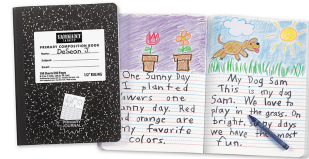 PRIMARY COMPOSITION BOOK
DeSean J.
1/2" RULING
PRIMARY
JOURNAL
One Sunny Day
I planted
flowers one
sunny day. Red
and orange are
my favorite
colors.
My Dog Sam
This is my dog
Sam. We love to
play in the grass. On
bright, sunny days
we have the most
fun.